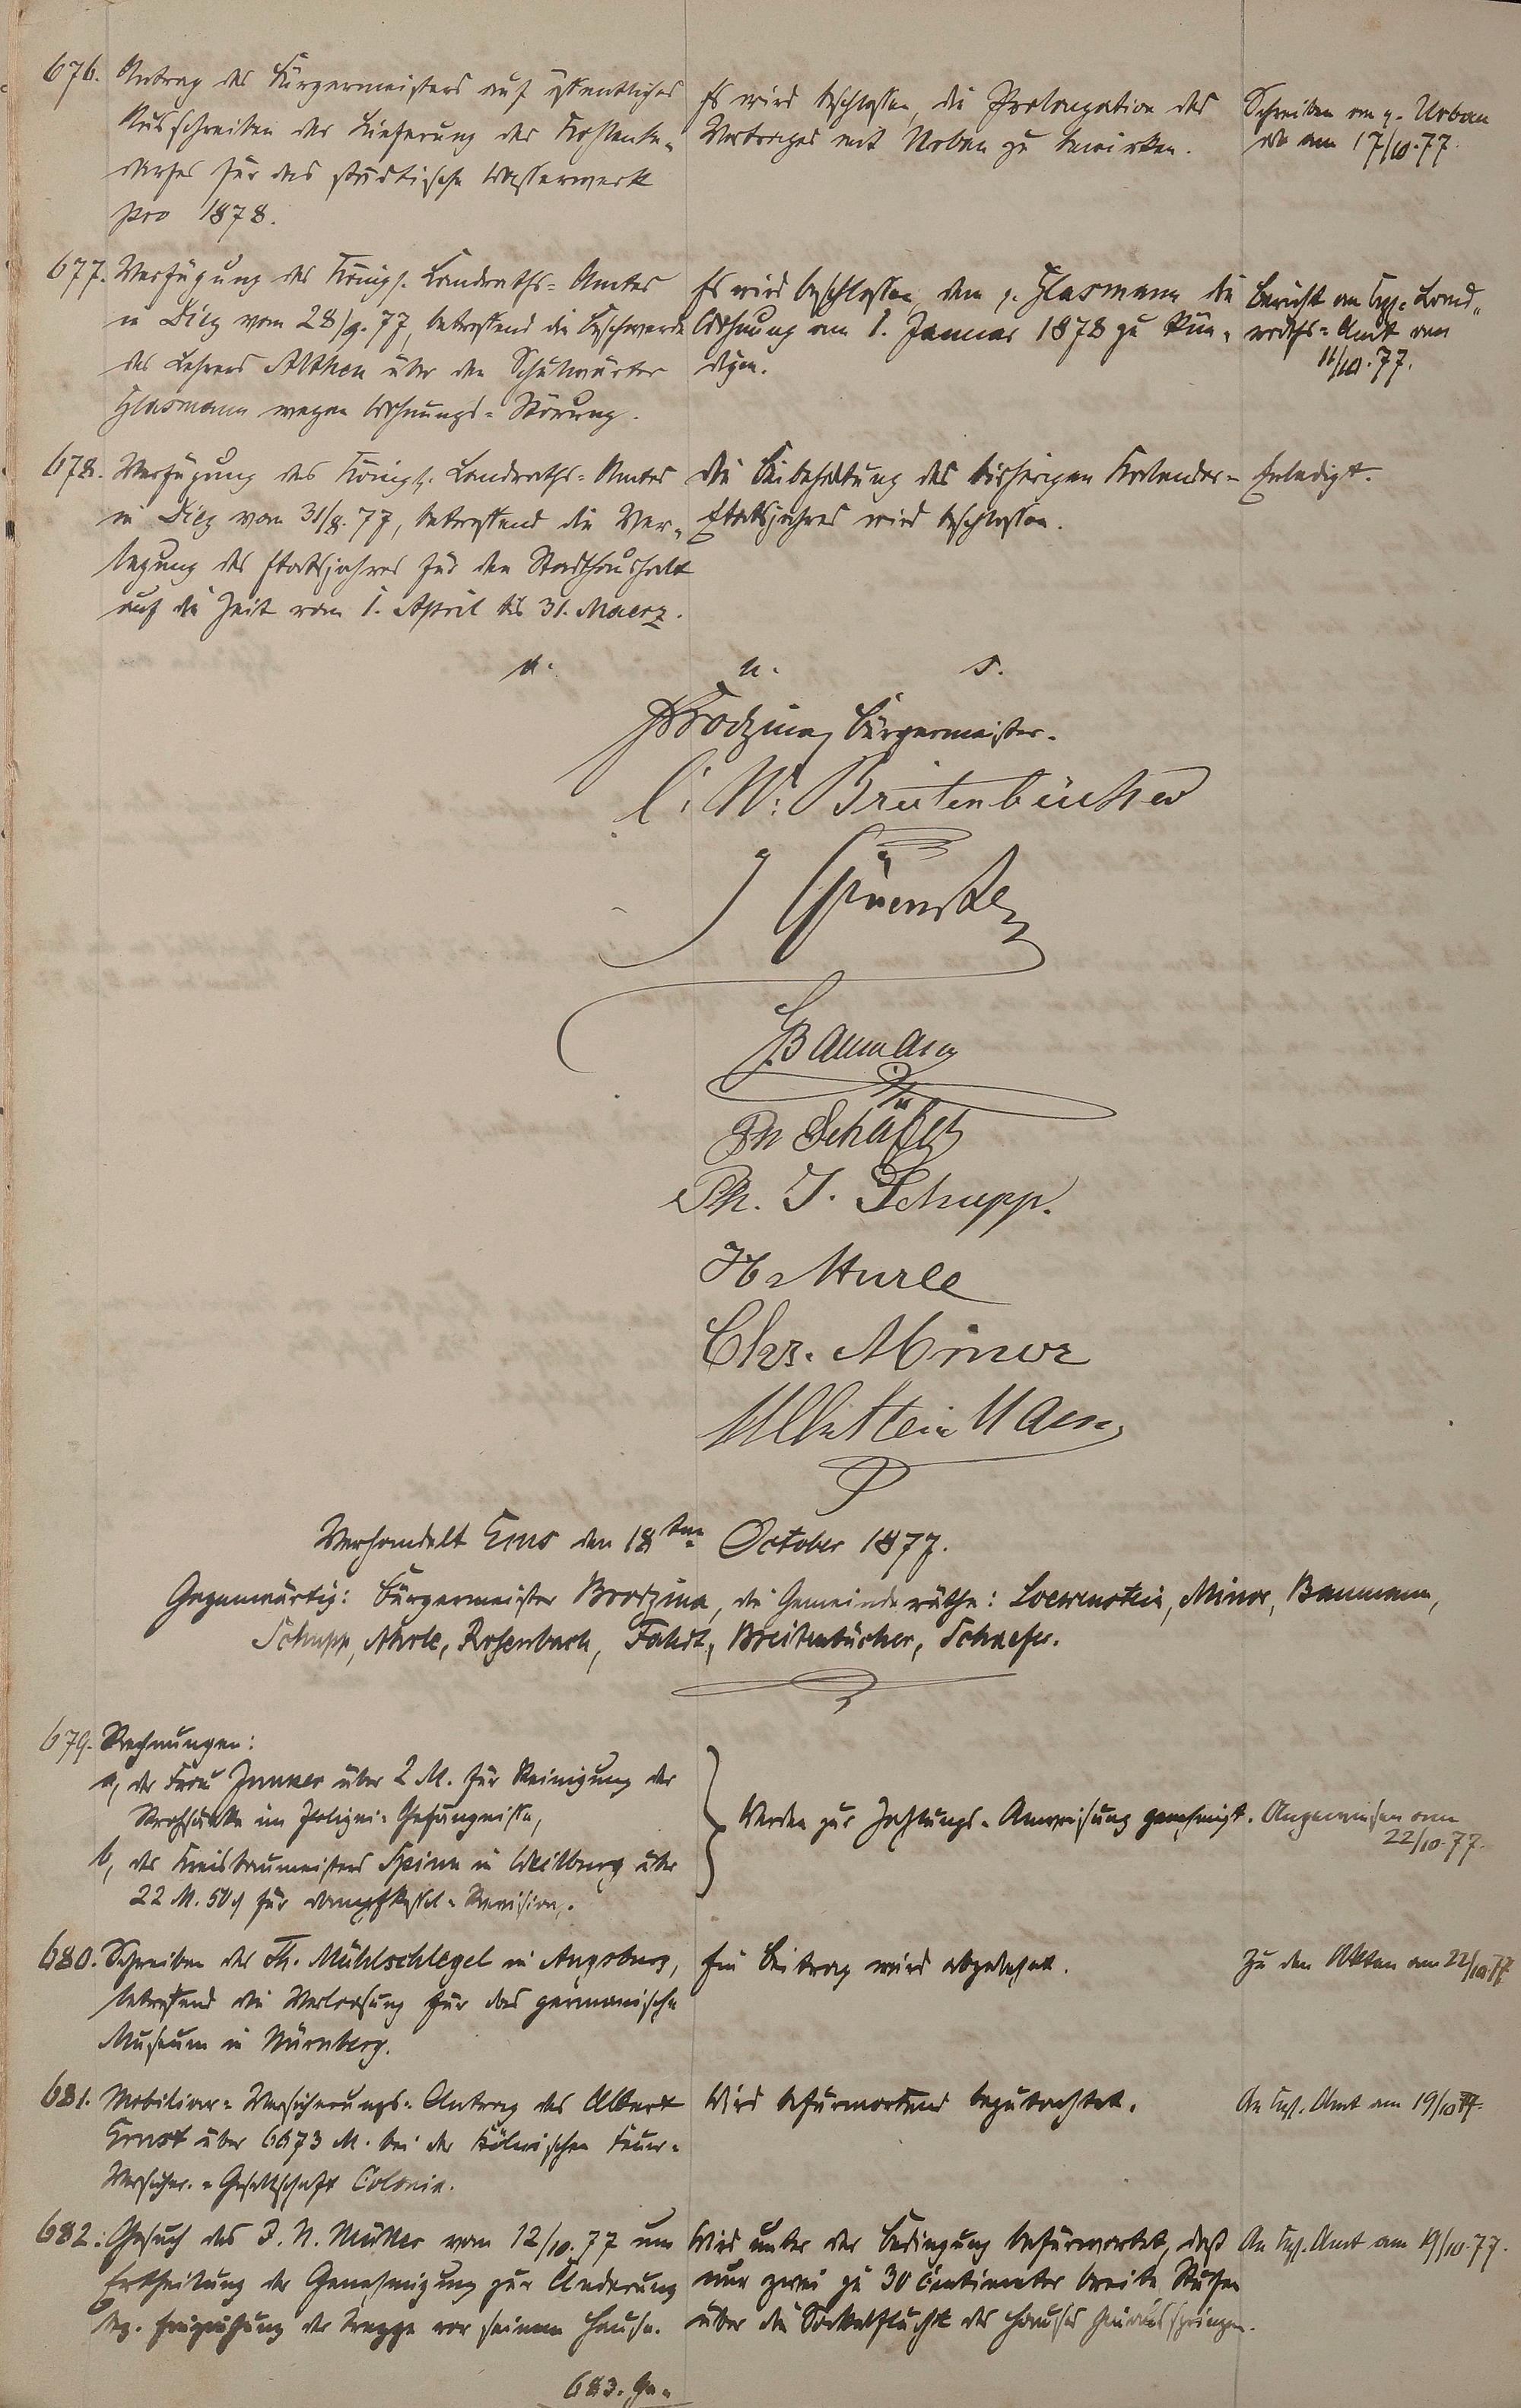 676. Antrag des Bürgermeisters auf öffentliches
Ausschreiben der Lieferung des Kohlenbe-
darfes für das städtische Wasserwerk
pro 1878.
Es wird beschlossen, die Prolongation des
Vertrages mit Urban zu bewirken.
Schreiben an p. Urban
ab am 17/10.77.
677. Verfügung des Königl. Landraths-Amtes
in Diez vom 28/9.77, betreffend die Beschwerde
des Lehrers Althen über den
Glasmann wegen Wohnungs-Störung.
Es wird beschlossen, dem p. Glasmann die
Wohnung am 1. Januar 1878 zu kün-
digen.
Bericht an Kgl. Land-
raths-Amt am
11/10.77.
678. Verfügung des Königl. Landraths-Amtes
in Diez vom 31/8.77, betreffend die Ver-
legung des Etatsjahres für den Stadthaushalt
auf die Zeit vom 1. April bis 31. Maerz.
Die Beibehaltung des bisherigen Kalender-
Etatsjahres wird beschlossen.
Erledigt.
a. u. s.
Brodzina Bürgermeister.
C. W. Breitenbücher
Baumann
Ph Schäfer
Ph. J. Schupp.
H. Murle
Chr. Minor
Verhandelt Ems den 18ten October 1877.
Gegenwärtig: Bürgermeister Brodzina, die Gemeinderäthe: Loewenstein, Minor, Baumann,
Schupp, Murle, Rosenbach, Fahdt, Breitenbücher, Schaefer.
679. Rechnungen:
a, der Frau Junker über 2 M. für Reinigung der
Strohsäcke im Polizei-Gefängnisse,
b, des Kreisbaumeisters Spinn in Weilburg über
22 M. 50 für Dampfkessel-Revision.
Werden zur Zahlungs-Anweisung genehmigt.
Angewiesen am
22/10.77.
680. Schreiben des Th. Mühlschlegel in Augsburg,
betreffend die Verloosung für das germanische
Museum in Nürnberg.
Ein Beitrag wird abgelehnt.
Zu den Akten am 22/10.77
681. Mobiliar-Versicherungs-Antrag des Albert
Ernst über 6673 M. bei der Kölnischen Feuer-
Versicher.-Gesellschaft Colonia.
Wird befürwortend begutachtet.
An Kgl. Amt am 19/10.77.
682. Gesuch des J. N. Müller vom 12/10.77 um
Ertheilung der Genehmigung zur Änderung
der Treppe vor seinem Hause.
Wird unter der Bedingung befürwortet, daß
nur zwei zu 30 Centimeter breite Stufen
über die Sockelflucht des Hauses hinausspringen.
An Kgl. Amt am 19/10.77.
683. Ge-